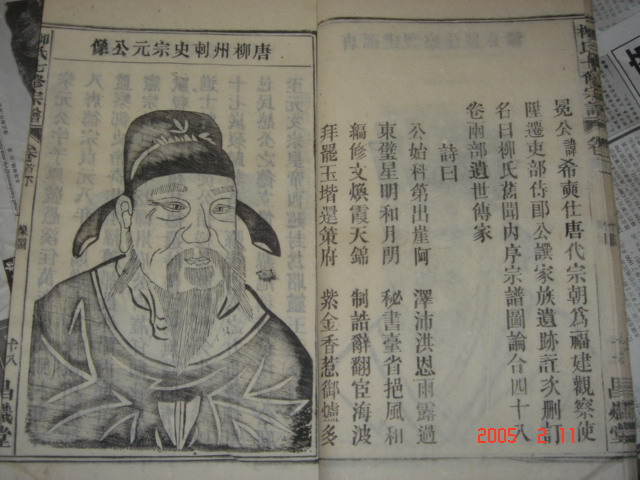 柳氏七修宗譜
冕公諱希奭仕唐代宗朝為福建觀察使
陞遷吏部侍郎公譔家族遺跡註次刪訂
名曰柳氏舊聞內序宗譜圖論合四十八
卷兩部遺世傳家
詩曰
公始科第出崖阿 澤沛洪恩雨露過
東璧星明和月朗 秘書臺省挹風和
編修文煥霞天錦 制誥辭翻宦海波
拜罷玉堦還策府 紫金香惹御爐多
唐柳州刺史宗元公像
柳氏七修宗譜 卷首下
2005 2 11